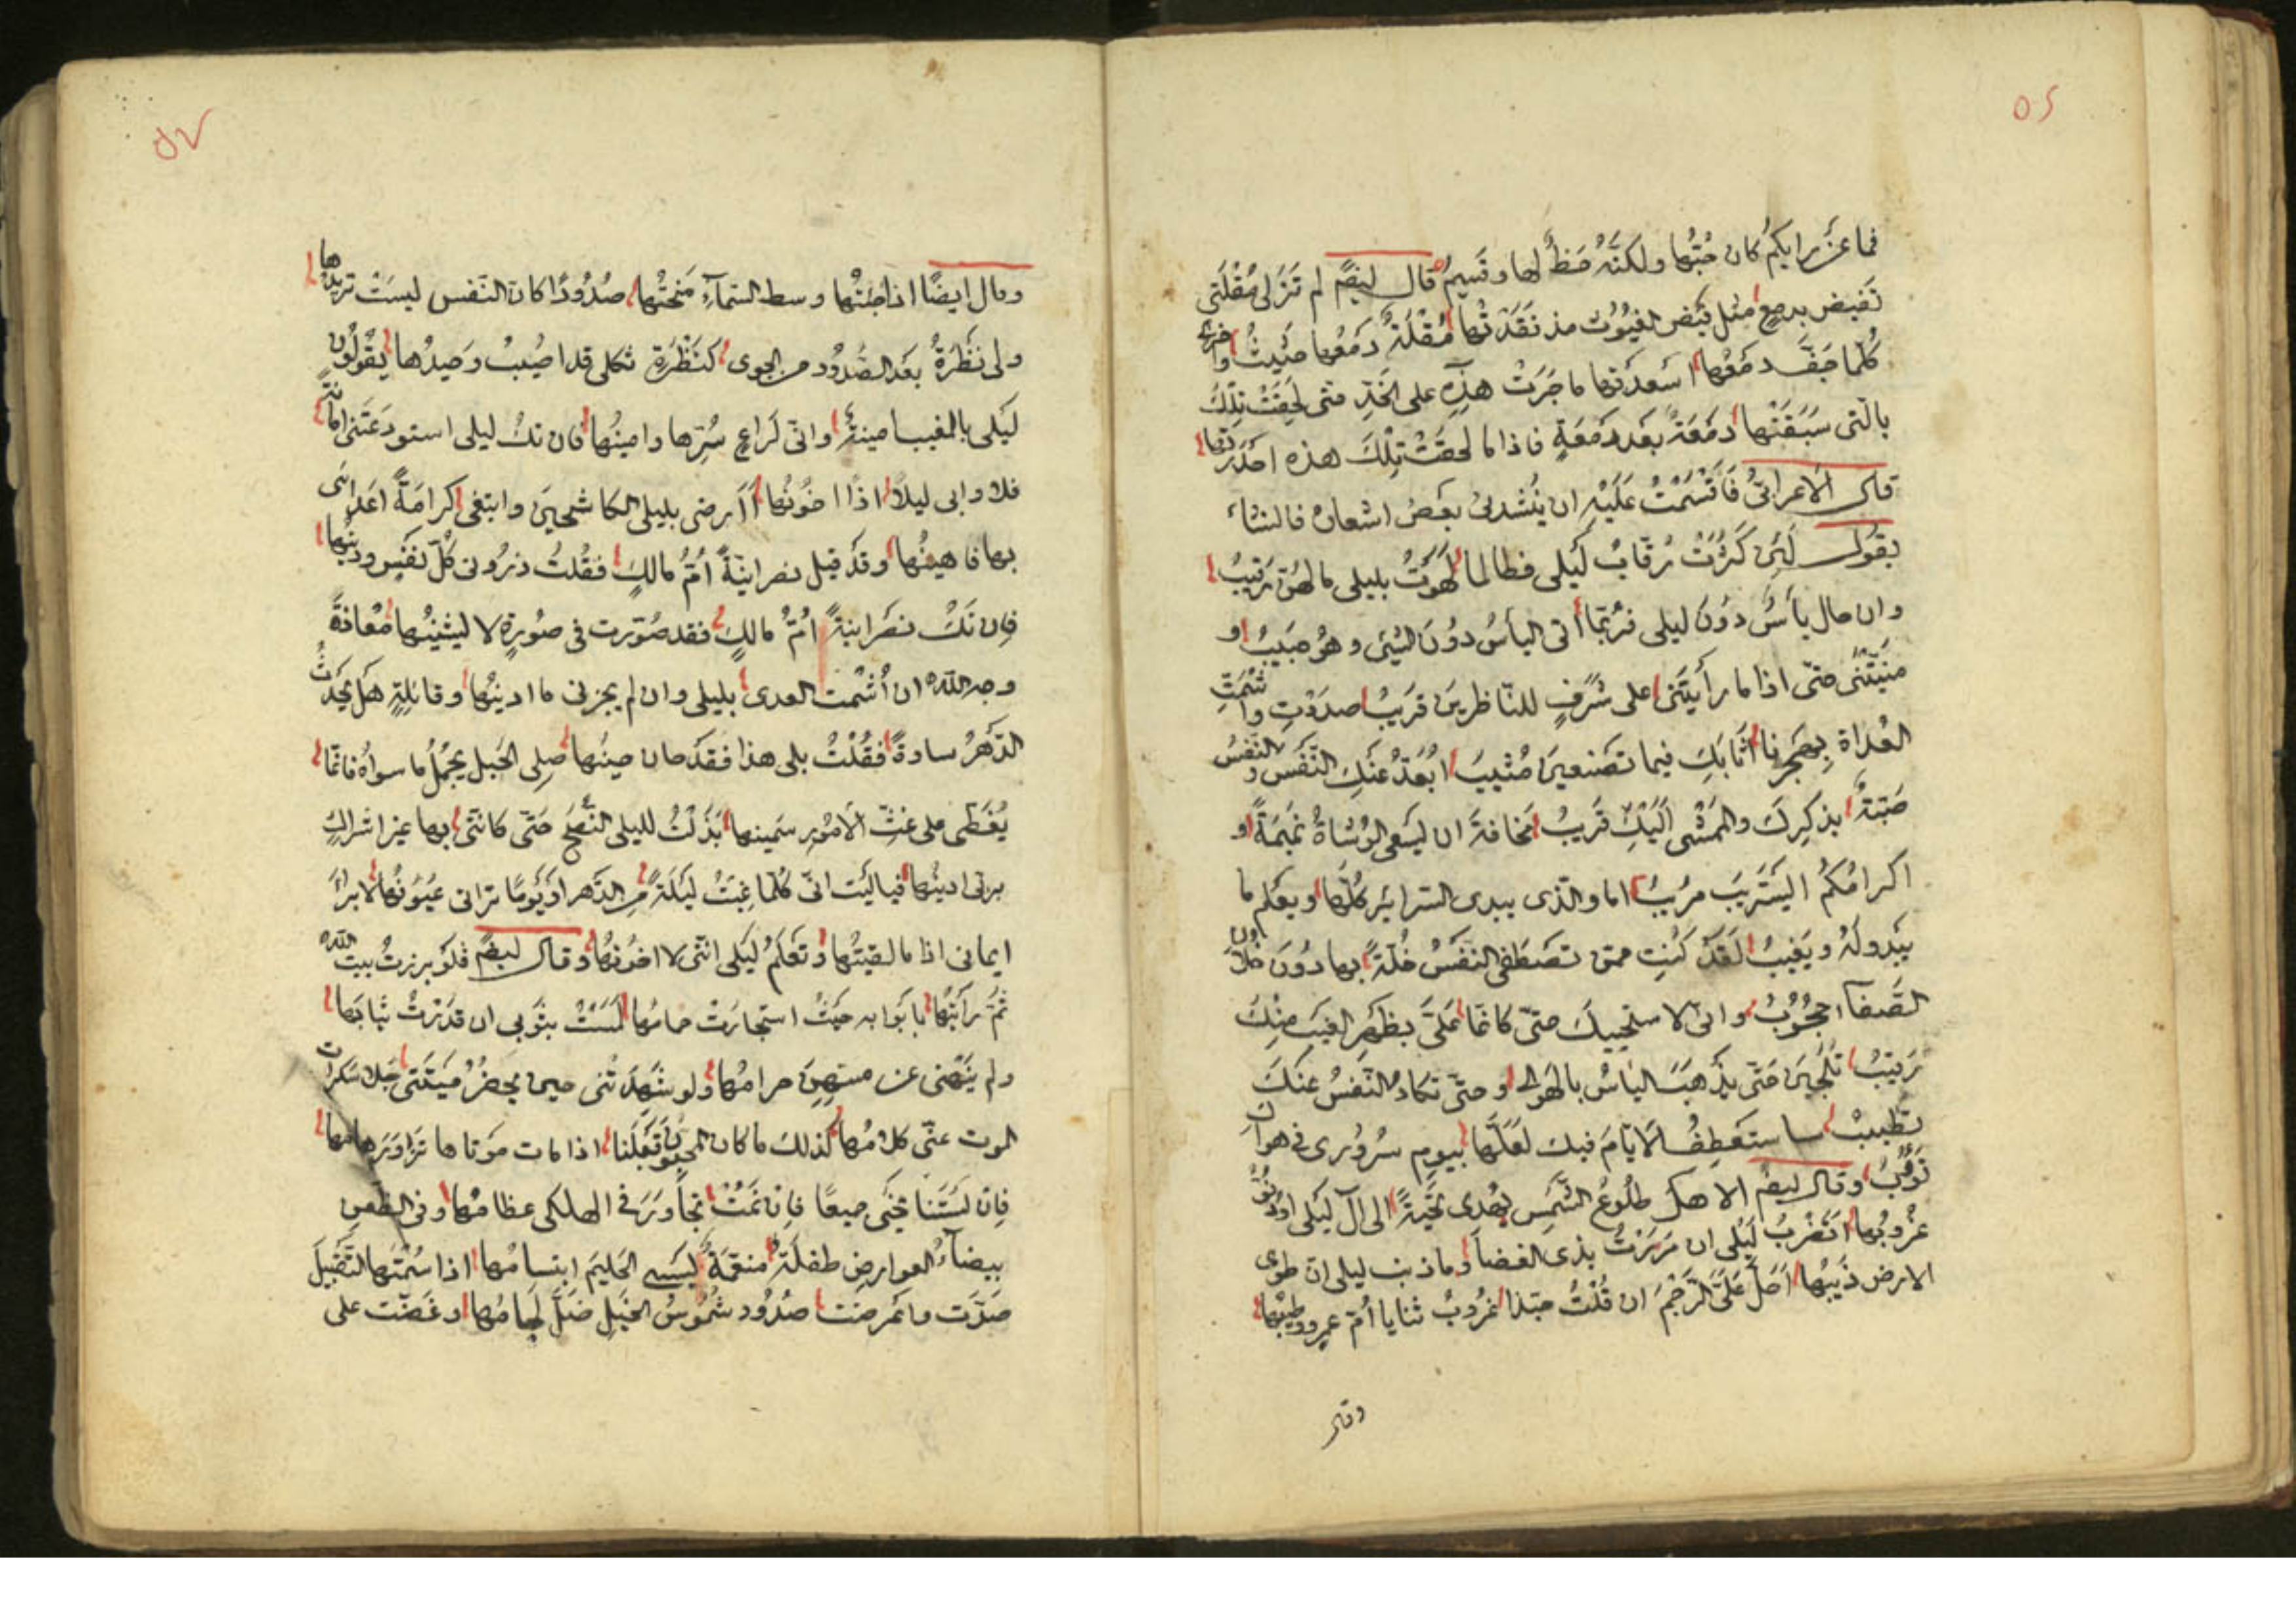 ٥٢
فما عن رايكم كان حُبُّها ولكنَّهُ حَظٌّ لها وقَسِيمُ قال ايضًا لم تَزَل مُقْلَتى
تَفيض بدمع مثل فَيْض الغيُوث مذ نَقَدَتْها مُقْلَةٌ دَمْعُها حَثِيثٌ واخرى
كُلّما جَفَّ دمَعُها اسعدَتها ما جَرَتْ هذه على الخَدِّ حتى لَحِقَتْ تِلكَ
بالّتى سَبَقَتْها دَمْعَةٌ بَعْدَ دَمْعَةٍ فاذا ما لحقَتْ تِلْكَ هذه احْدَرَتها
قال الاعرابىُّ فَاَقْسَمْتُ عَلَيْهِ ان يُنْشدنى بَعضَ اشعاره فانشاء
يقول لَئِن كَثُرَتْ رُقّابُ لَيلى فطالما لَهَوْتُ بليلى ما لهنّ رَقيبُ
وان حال يأسٌ دوُنَ ليلى فرُبّما أتى اليأسُ دوُنَ الشئ وهُو حَبيبُ او
منَّيتَنى حتّى اذا ما رأيْتَنى على شَرَفٍ للنّاظرينَ قَريبُ صدَدْتِ واشْمَتِّ
العُداةَ بِهَجْرِنا اثَابَكِ فيما تَصْنعينَ مُثيبُ ابُعّدُ عَنكِ النَّفْسَ والنَّفسُ
صَبّةٌ بذكرِكَ والمَمْشى اِلَيْكِ قَريبُ مَخافةَ ان يَسْعى الوُشاةُ نَميمَةً او
اكرامُكُم ان يَسْتَريبَ مرُيبُ اما والّذى يبدى السّرايرَ كُلَّها ويعلم ما
يَبْدولَهُ ويَغيبُ لَقَدْ كنُتِ ممّن تَصْطَفى النَفْسُ خُلّةً بها دوُنَ خُلّانِ
الصَّفآء حجُوُبُ وانى لاستحييكَ حتّى كانّما عَلىَّ بظَهرِ الغَيبِ منِكَ
رَقيبُ تَلَجّينَ حَتّى يذْهبَ اليَأسُ بالهَوى وحتّى تكادُ النَّفسُ عنَكَ
تَطيبُ ساستَعطِفُ الاَيّامَ فيك لعَلَّها بيومِ سرُوُرى فى هواكِ
تَؤُبُ وقال ايضًا الا هل طلُوُعُ الشَّمسِ يُهْدى تَحيَّةً الى آل لَيلى اوْ دُنُوُّ
غرُوُبُها اتَضْرِبُ لَيْلى ان مَرَرْتُ بذى الغضا وما ذنب ليلى ان طوى
الارض ذيبُها اَحَلَّ عَلىَّ الرَّجْمُ ان قُلْتُ حبّذا غرُوُبُ ثنايا اُمّ عمروٍ وطيبُها
وقال
٥٧
وقال ايضًا اذا جئتُها وسط السّماءِ مَنَحتُها صُدُوُدًا كان النّفس ليسَتْ تريدُها
ولى نَظْرَةٌ بعَد الصُّدوُد من الجوى كنَظْرَةِ ثكلى قد اصُيبَ وَحيدُها يقُوُلُون
لَيلى بالمَغيب امينةٌ وانّى لَراعٍ سُرِّها وامينُها فان تكُ ليلى استودَعَتَنى امانَةً
فلا وابى ليلًا اذًا اخُونُها أاَرضى بليلى الكاشحينَ وابتغى كرامَةً اعدائى
بها فاهينُها وقَد قيل نصرانيّةٌ اُمُّ مالكٍ فقُلتُ ذرُونى كُلّ نفَسٍ ودينُها
فان تَكُ نصَرانيةً اُمُّ مالكٍ فقد صُوّرت فى صوُرةٍ لا يَشينُها مُعاذةَ
وجه اللّه ان اُشْمت العدى بليلى وان لم يجزنى ما ادينُها وقائلةٍ هَل يُحْدِثُ
الدَّهرُ سلوةً فقُلْتُ بلى هذا فقَد حان حينُها صِلى الحَبل يُجْمِلُ ما سواهُ فانّما
يُغَطّى على غثِّ الاُموُرِ سَمينها بَذَلْتُ لليلى النُّصْحَ حَتّى كاَنَّنى بها غير اشراكٍ
برَبّى ادينُها فياليَت انّى كُلّما غِبتُ لَيلَةً مِن الدَّهر اوَيَومًا ترانى عيُوُنُها لابرأ
ايمانى اذا ما لقيتُها وتعَلَمُ لَيلى انّنى لا اخوُنهُا وقال ايضًا فلَو برزتُ بيتَ اللّه
ثُمّ رأيتُها بابَوابه حَيثُ استجارَتْ حمامُها لَمَسَتْ بثَوبى ان قدَرْتُ ثيابَها
ولم ينهَنى عن مسّهِنَ حرامُها ولو شَهِدَتنى حين يَحضرُ ميَتَتى جَلا سَكَراتِ
الموت عنّى كلامُها كذلك ما كان المحبّوُنَ قَبْلَنا اذا مات مَوتاها تَزاوَرَ هامُها
فان لَسْتَنا نحَيى جميعًا فان نَمُتْ تجاوَرَ فى الهلكى عظامُها وفى الظعن
بيضآءُ العوارضِ طفلَةٌ منعّمَةٌ يَسبى الحَليمَ ابتسامُها اذا سُمْتَها التَقبيلَ
صَدّت واعَرضت صدُوُد شمُوُسُ الخَيلِ ضَلَّ لِجامُها وعَضّت على